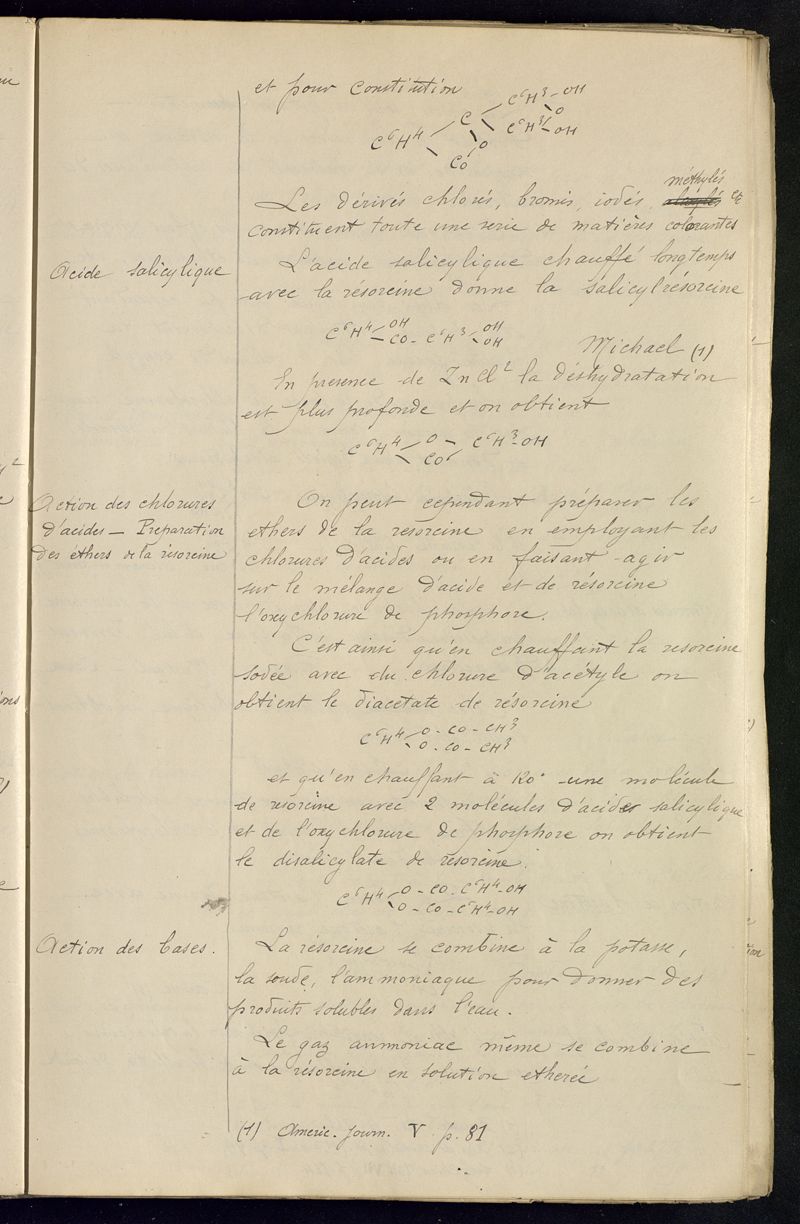 et pour constitution
C⁶H³ - OH
C O
C⁶H⁴ C⁶H³ - OH
O
CO
méthylés
Les dérivés chlorés, bromés, iodés, et
constituent toute une serie de matières colorantes
Acide salicylique
L'acide salicylique chauffé longtemps
avec la résorcine donne la salicylrésorcine
C⁶H⁴ OH
CO - C⁶H³ OH
OH
Michael (1)
En presence de ZnCl² la déshydratation
est plus profonde et on obtient
C⁶H⁴ O C⁶H³-OH
CO
Action des chlorures
d'acides — Preparation
des ethers de la résorcine
On peut cependant préparer les
ethers de la resorcine en employant les
chlorures d'acides ou en faisant agir
sur le mélange d'acide et de résorcine
l'oxychlorure de phosphore.
C'est ainsi qu'en chauffant la resorcine
sodée avec du chlorure d'acétyle on
obtient le diacetate de résorcine
C⁶H⁴ O - CO - CH³
O - CO - CH³
et qu'en chauffant à 120° une molécule
de resorcine avec 2 molécules d'acide salicylique
et de l'oxychlorure de phosphore on obtient
le disalicylate de resorcine.
C⁶H⁴ O - CO - C⁶H⁴-OH
O - CO - C⁶H⁴-OH
Action des bases.
La résorcine se combine à la potasse,
la soude, l'ammoniaque pour donner des
produits solubles dans l'eau.
Le gaz ammoniac même se combine
à la résorcine en solution etherée
(1) Americ. Journ. V p. 81